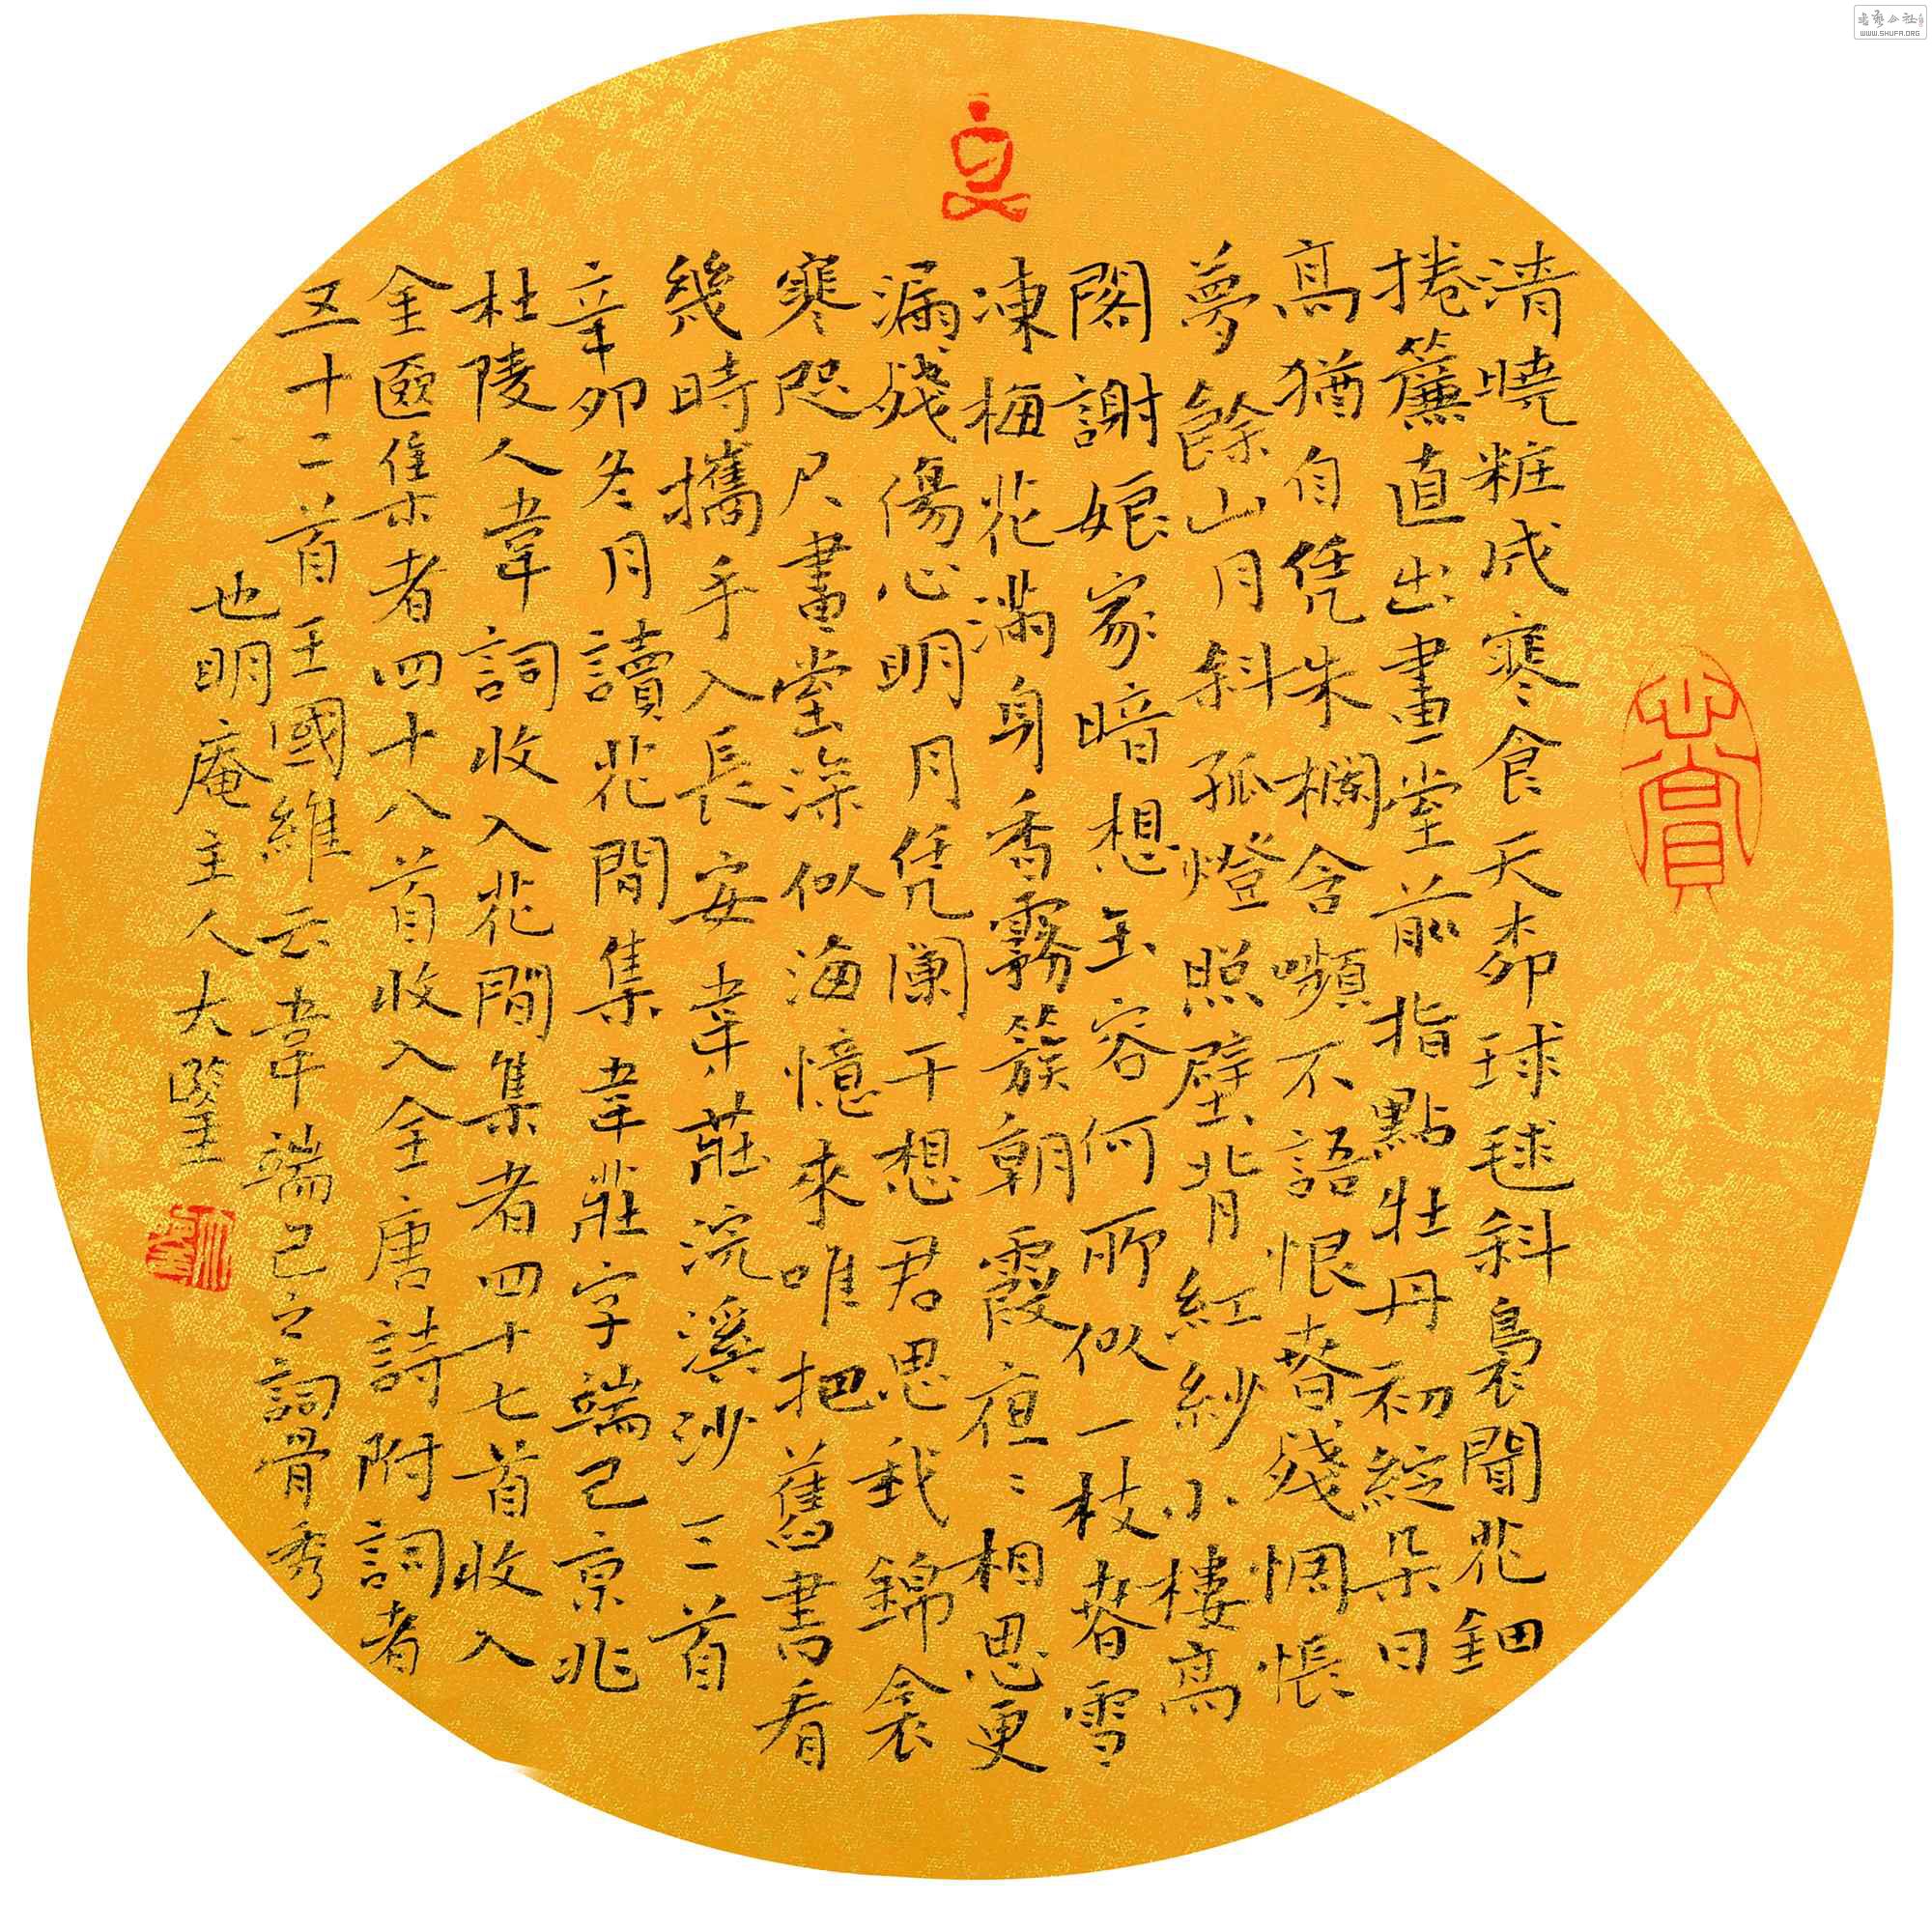 清曉粧成寒食天柳球毬斜裊間花鈿
捲簾直出畫堂前指點牡丹初綻朵日
高猶自凭朱欄含嚬不語恨春殘惆悵
夢餘山月斜孤燈照壁背紅紗小樓高
閣謝娘家暗想玉容何所似一枝春雪
凍梅花滿身香霧簇朝霞夜〻相思更
漏殘傷心明月凭闌干想君思我錦衾
寒咫尺畫堂深似海憶來唯把舊書看
幾時攜手入長安韋莊浣溪沙三首
辛卯冬月讀花間集韋莊字端己京兆
杜陵人韋詞收入花間集者四十七首收入
金匳集者四十八首收入全唐詩附詞者
五十二首王國維云韋端己之詞骨秀
也明庵主人大壑
心賞
WWW.SHUFA.ORG